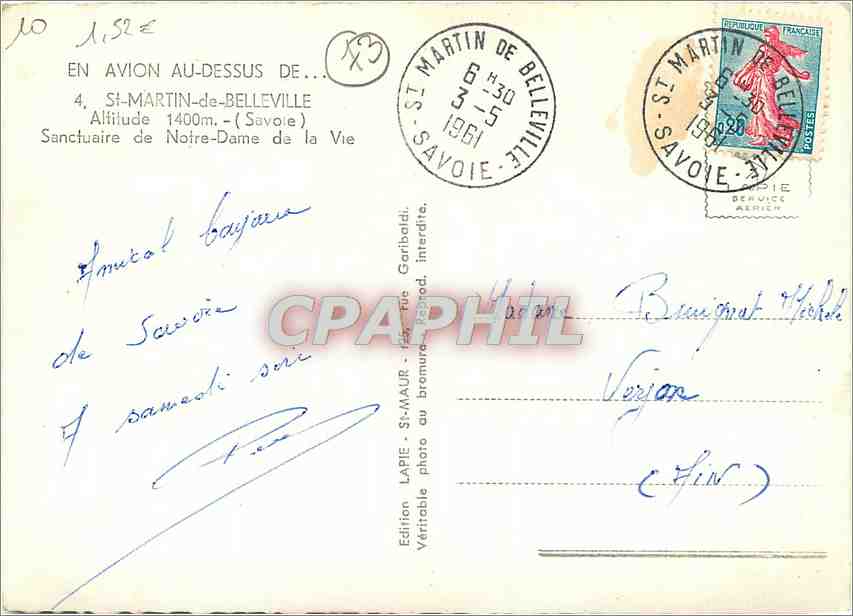 10
1,52 €
73
EN AVION AU-DESSUS DE...
4, St-MARTIN-de-BELLEVILLE
Altitude 1400m. - (Savoie)
Sanctuaire de Notre-Dame de la Vie
ST MARTIN DE BELLEVILLE
6 H 30
3 - 5
1961
SAVOIE
REPUBLIQUE FRANÇAISE
0,20
POSTES
ST MARTIN DE BELLEVILLE
6 H 30
3 - 5
1961
SAVOIE
LAPIE
SERVICE
AERIEN
Amical bonjour
de Savoie
A samedi soir
Edition LAPIE - St-MAUR - 125, rue Garibaldi.
Véritable photo au bromure - Reprod. interdite.
CPAPHIL
Madame
Verjon
(AIN)